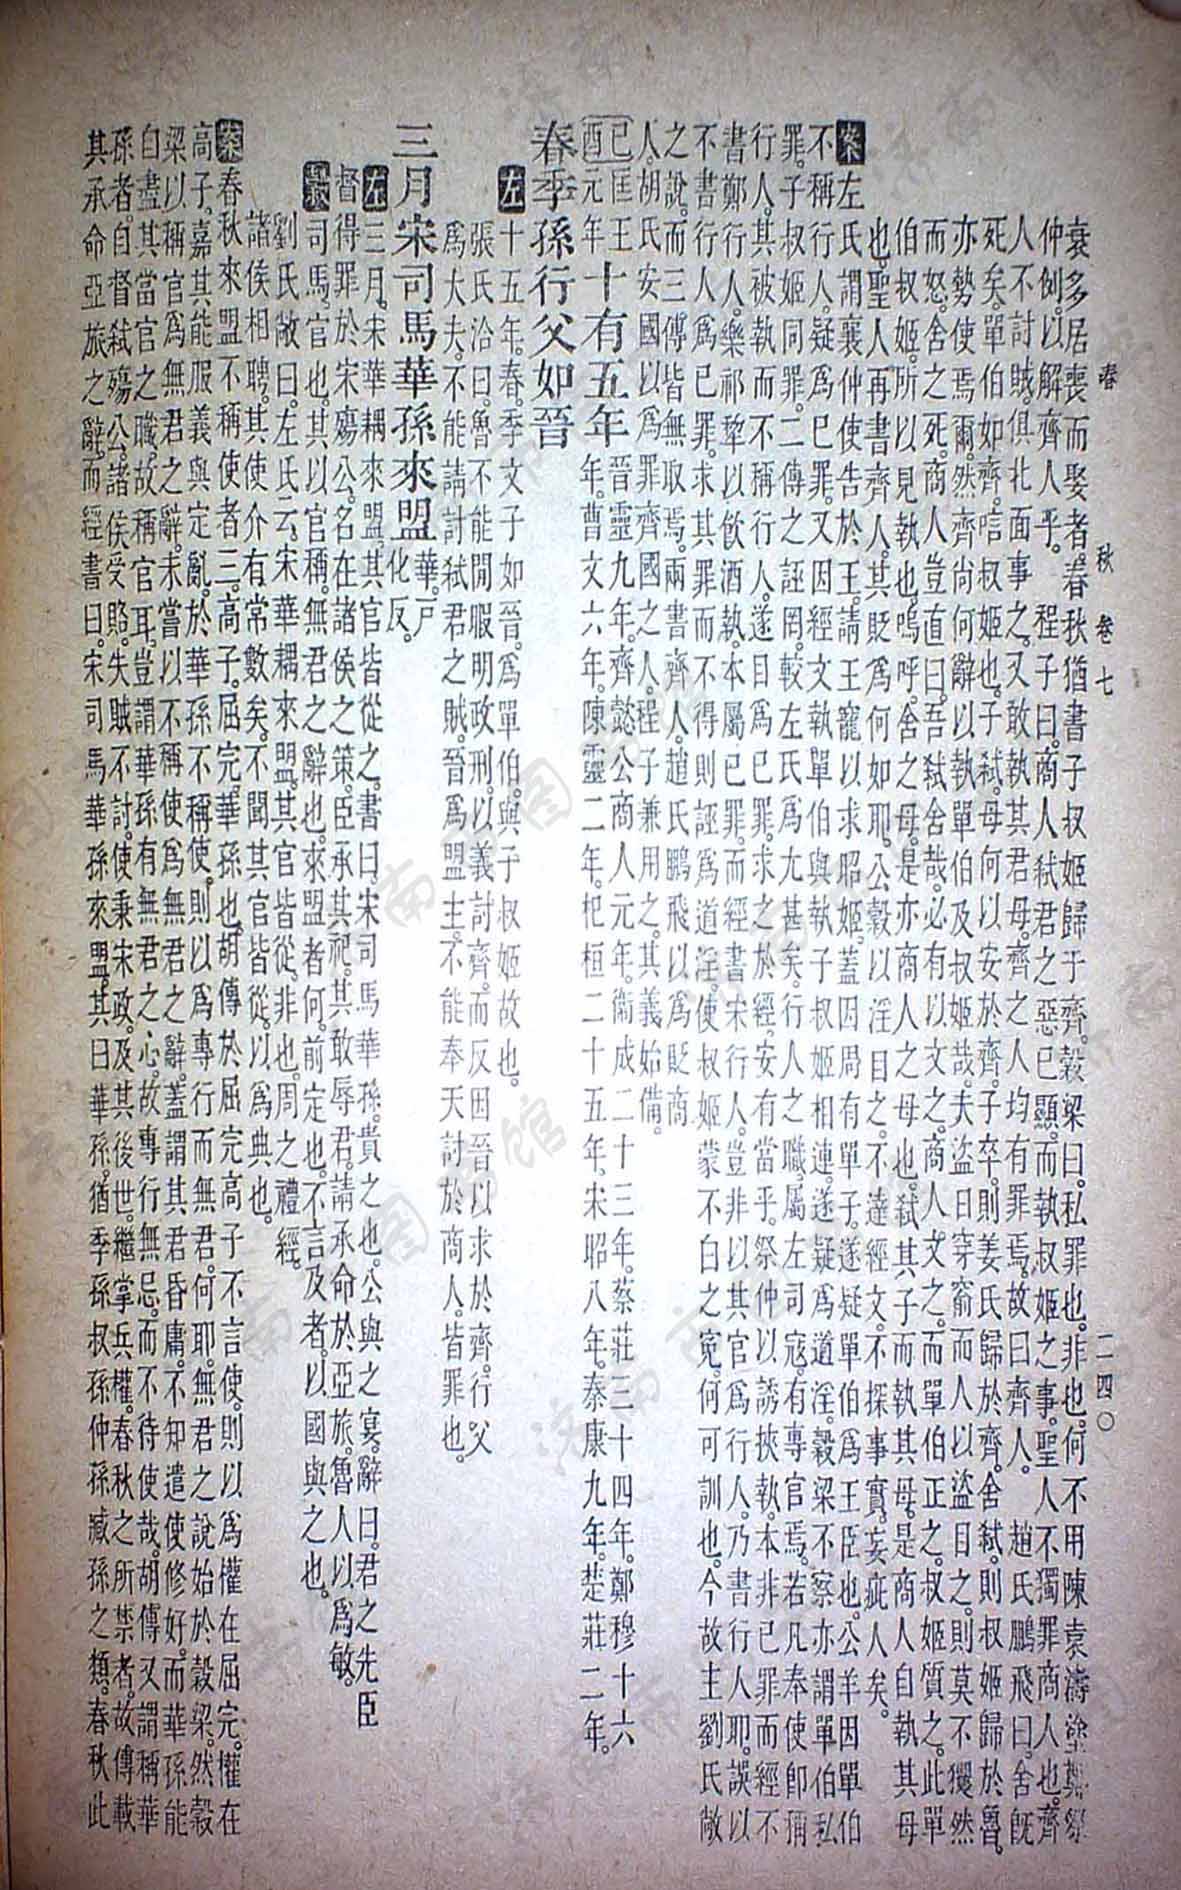 春　秋　卷七　二四〇
衰多居喪而娶者。春秋猶書子叔姬歸于齊。穀梁曰。私罪也。非也。何不用陳袁濤塗與祭
仲例。以解齊人乎。程子曰。商人弑君之惡已顯。而執叔姬之事。聖人不獨罪商人也。齊
人不討賊。俱北面事之。又敢執其君母。齊之人均有罪焉。故曰齊人。趙氏鵬飛曰。舍既
死矣。單伯如齊。唁叔姬也。子弑。母何以安於齊。子卒。則姜氏歸於齊。舍弑。則叔姬歸於魯。
亦勢使焉爾。然齊尚何辭以執單伯及叔姬哉。夫盜日穿窬而人以盜目之。則莫不玃然
而怒。舍之死。商人豈直曰。吾弑舍哉。必有以文之。商人文之。而單伯正之。叔姬質之。此單
伯叔姬。所以見執也。嗚呼。舍之母。是亦商人之母也。弑其子而執其母。是商人自執其母
也。聖人再書齊人。其貶爲何如耶。公穀以淫目之。不達經文。不探事實。妄疵人矣。
案左氏謂襄仲使告於王。請王寵以求昭姬。蓋因周有單子。遂疑單伯爲王臣也。公羊因單伯
不稱行人。疑爲已罪。又因經文執單伯與執子叔姬相連。遂疑爲道淫。穀梁不察亦謂單伯私
罪。子叔姬同罪。二傳之誣罔。較左氏爲尤甚矣。行人之職。屬左司寇。有專官焉。若凡奉使卽稱
行人。其被執而不稱行人。遂目爲已罪。求之於經。安有當乎。祭仲以誘挾執。本非已罪而經不
書鄭行人。樂祁犂以飲酒執。本屬已罪。而經書宋行人。豈非以其官爲行人。乃書行人耶。誤以
不書行人爲已罪。求其罪而不得。則誣爲道淫。使叔姬蒙不白之冤。何可訓也。今故主劉氏敞
之說。而三傳皆無取焉。兩書齊人。趙氏鵬飛以爲貶商
人。胡氏安國以爲罪齊國之人。程子兼用之。其義始備。
己酉匡王元年十有五年晉靈九年。齊懿公商人元年。衞成二十三年。蔡莊三十四年。鄭穆十六
年。曹文六年。陳靈二年。杞桓二十五年。宋昭八年。秦康九年。楚莊二年。
春季孫行父如晉
左十五年。春。季文子如晉。爲單伯與子叔姬故也。
張氏洽曰。魯不能閒暇明政刑。以義討齊。而反因晉以求於齊。行父
爲大夫。不能請討弑君之賊。晉爲盟主。不能奉天討於商人。皆罪也。
三月宋司馬華孫來盟華。戸化反。
左三月。宋華耦來盟。其官皆從之。書曰宋司馬華孫。貴之也。公與之宴。辭曰。君之先臣
督得罪於宋殤公。名在諸侯之策。臣承其祀。其敢辱君。請承命於亞旅。魯人以爲敏。
穀司馬。官也。其以官稱。無君之辭也。來盟者何。前定也。不言及者。以國與之也。
劉氏敞曰。左氏云。宋華耦來盟。其官皆從。非也。周之禮經。
諸侯相聘。其使介有常數矣。不聞其官皆從。以爲典也。
案春秋來盟不稱使者三。高子。屈完。華孫也。胡傳於屈完高子不言使。則以爲權在屈完。權在
高子。嘉其能服義與定亂。於華孫不稱使。則以爲專行而無君。何耶。無君之說始於穀梁。然穀
梁以稱官爲無君之辭。未嘗以不稱使爲無君之辭。蓋謂其君昏庸。不知遣使修好。而華孫能
自盡其當官之職。故稱官耳。豈謂華孫有無君之心。故專行無忌。而不待使哉。胡傳又謂稱華
孫者。自督弑殤公。諸侯受賂。失賊不討。使秉宋政。及其後世。繼掌兵權。春秋之所禁者。故傳載
其承命亞旅之辭。而經書曰。宋司馬華孫來盟。其曰華孫。猶季孫叔孫仲孫臧孫之類。春秋此